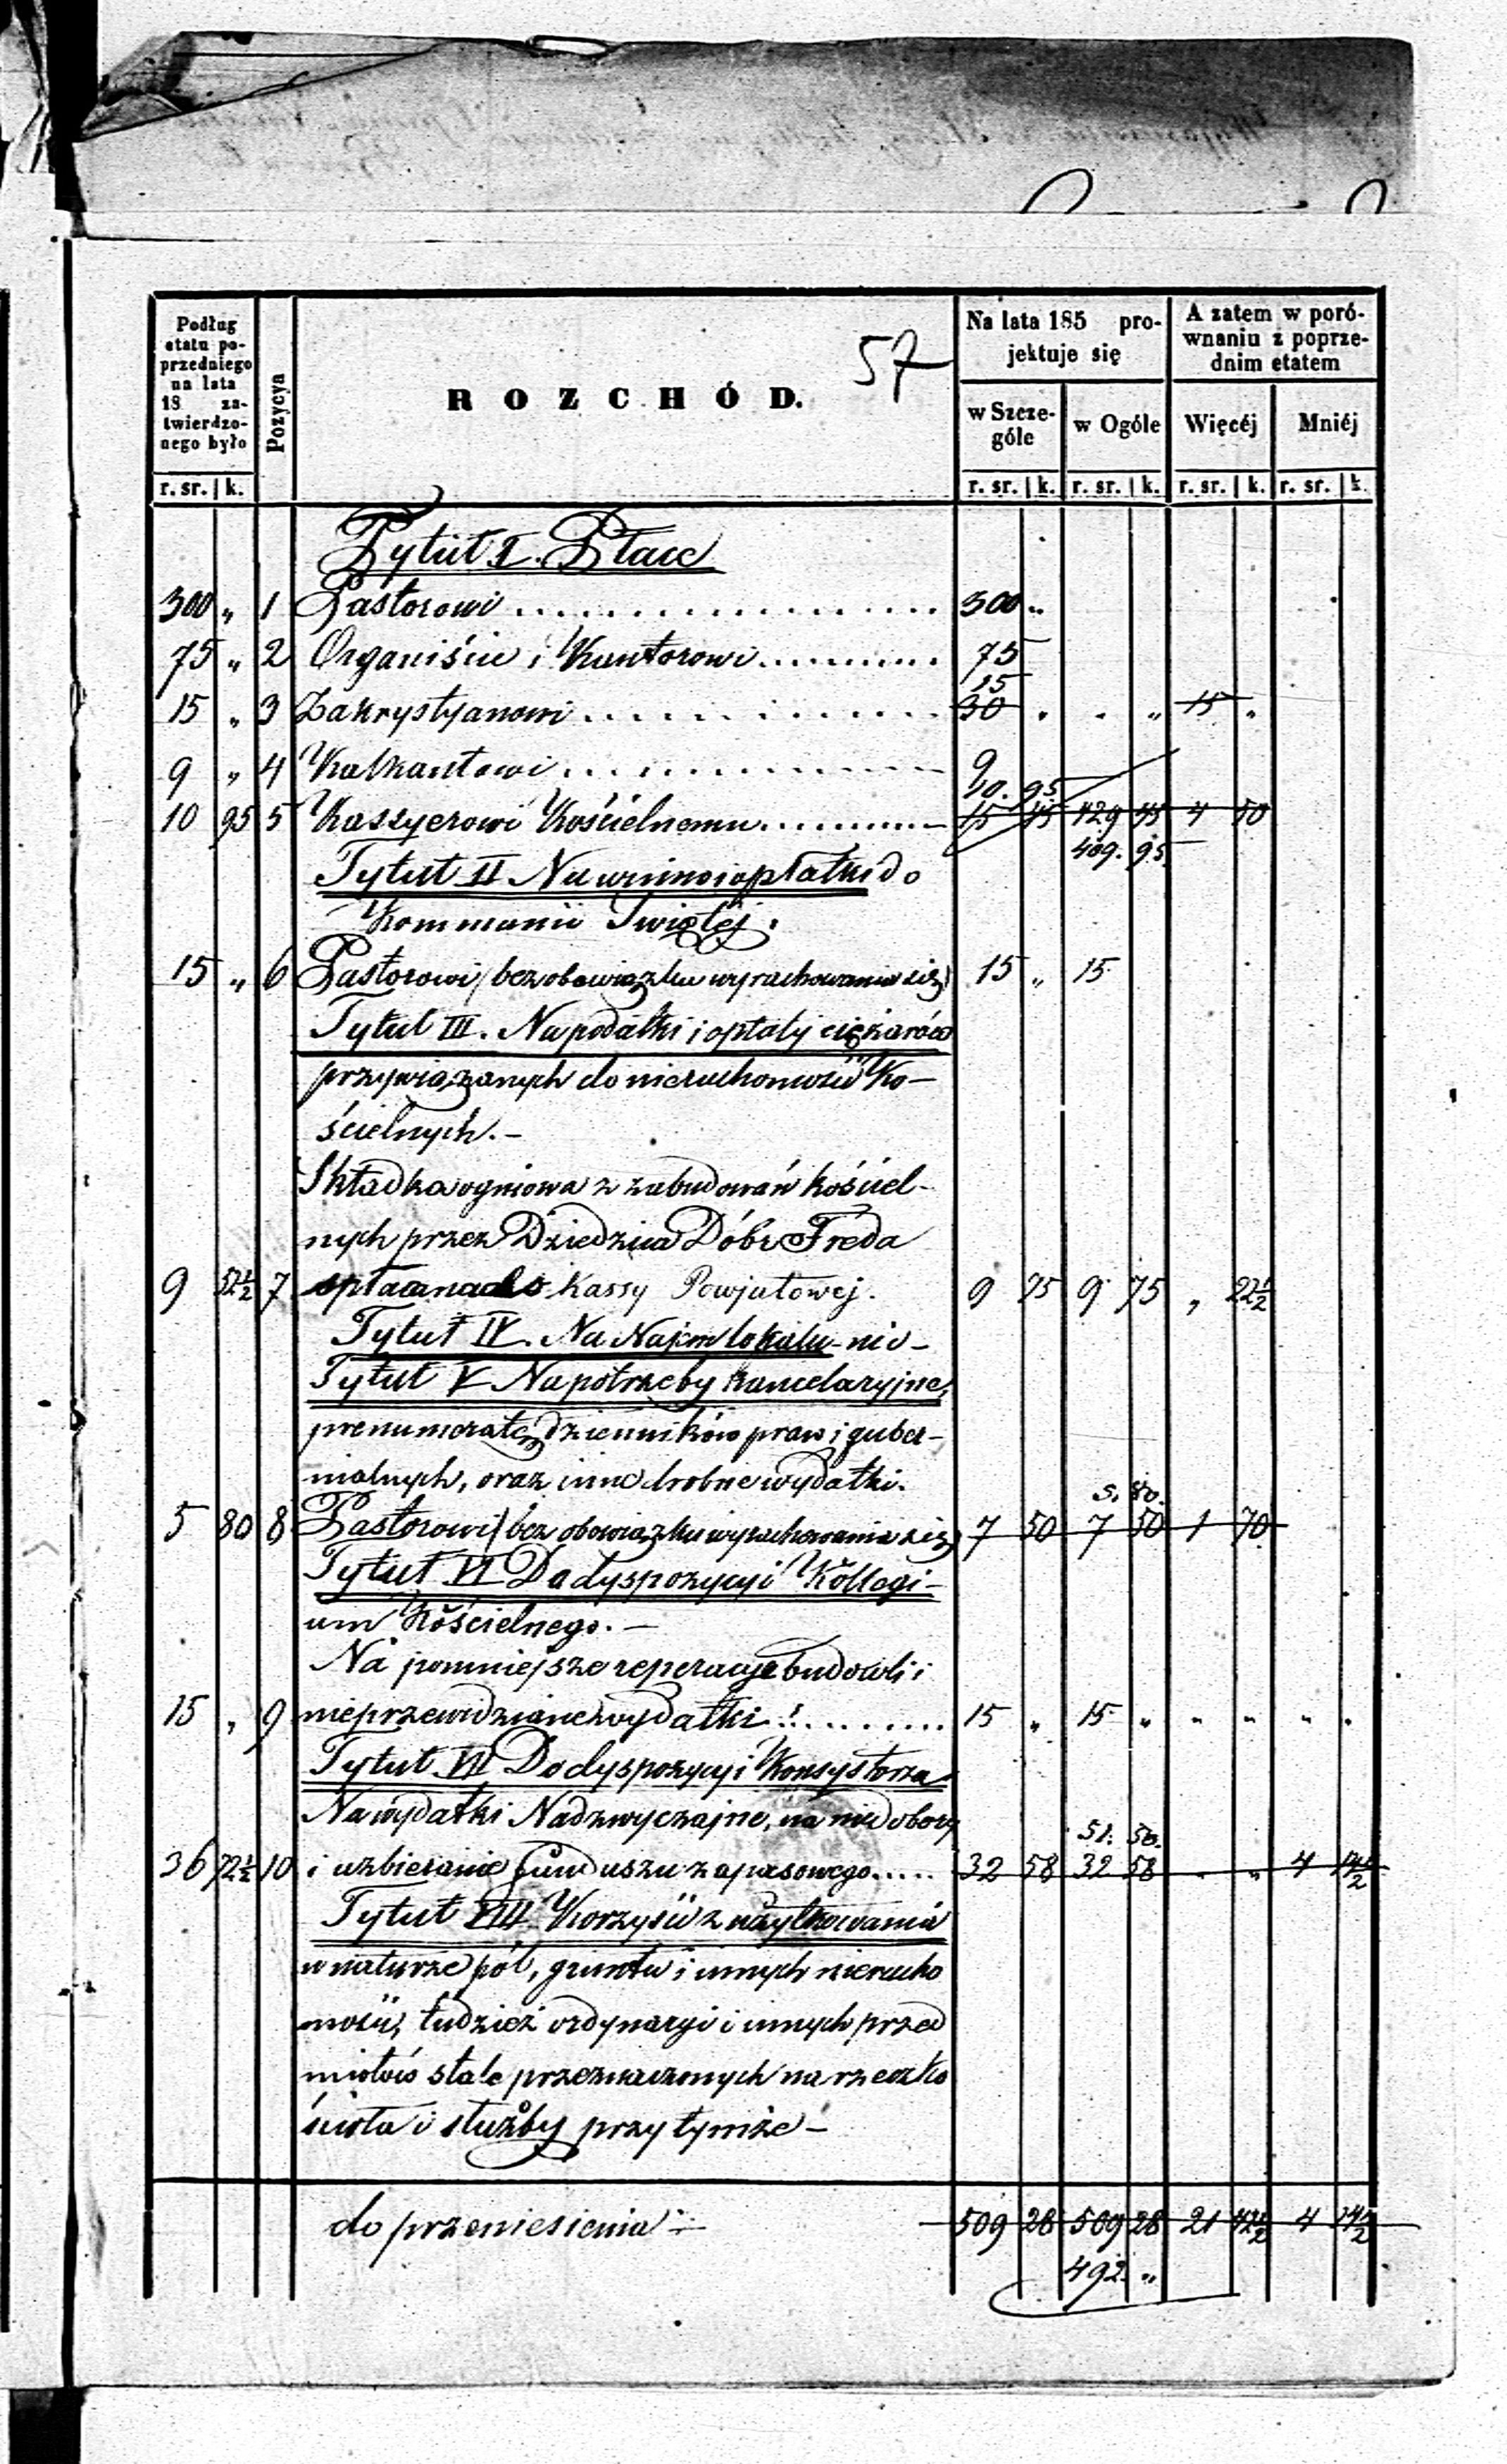 57
Podług etatu poprzedniego na lata 18 zatwierdzonego było
Pozycya
ROZCHÓD.
Na lata 185 projektuje się
A zatem w porównaniu z poprzednim etatem
w Szczególe
w Ogóle
Więcéj
Mniéj
r. sr. k. r. sr. k. r. sr. k. r. sr. k. r. sr. k.
Tytuł I. Płace
300 „ 1 Pastorowi 300 „
75 „ 2 Organiście i Kantorowi 75
15
15 „ 3 Zakrystyanowi 30 „ „ „ 15 „
9 „ 4 Kalkantowi 9
10. 95
10 95 5 Kassyerowi Kościelnemu 15 45 429 45 4 50
409. 95.
Tytuł II Na wino i opłatki do
Kommunii Świętéj.
15 „ 6 Pastorowi /bez obowiązku wyrachowania się/ 15 „ 15
Tytuł III. Na podatki i opłaty ciężarów
przywiązanych do nieruchomości Ko-
ścielnych.-
Składka ogniowa z zabudowań kościel-
nych przez Dziedzica Dóbr Freda
9 52½ 7 opłacana do Kassy Powjatowej. 9 75 9 75 „ 22½
Tytuł IV. Na Najem lokalu - nic -
Tytuł V Na potrzeby kancelaryjne,
prenumeratę dzienników praw i guber-
nialnych, oraz inne drobne wydatki.
5. 80.
5 80 8 Pastorowi /bez obowiązku wyrachowania się/ 7 50 7 50 1 70
Tytuł VI Do dyspozycyi Kollegi-
um Kościelnego.-
Na pomniejsze reperacye budowli i
15 „ 9 nieprzewidziane wydatki 15 „ 15 „ „ „ „ „
Tytuł VII Do dyspozycyi Konsystorza
Na wydatki Nadzwyczajne, na niedobory
51. 50.
36 72½ 10 i uzbieranie funduszu zapasowego 32 58 32 58 „ „ 4 14½
Tytuł VIII Korzyści z użytkowania
w naturze pól, gruntu i innych nierucho
mości, tudzież ordynaryi i innych przed
miotów stale przeznaczonych na rzecz ko
ścioła i służby przy tymże -
do przeniesienia 509 28 509 28 21 42½ 4 14½
492. „